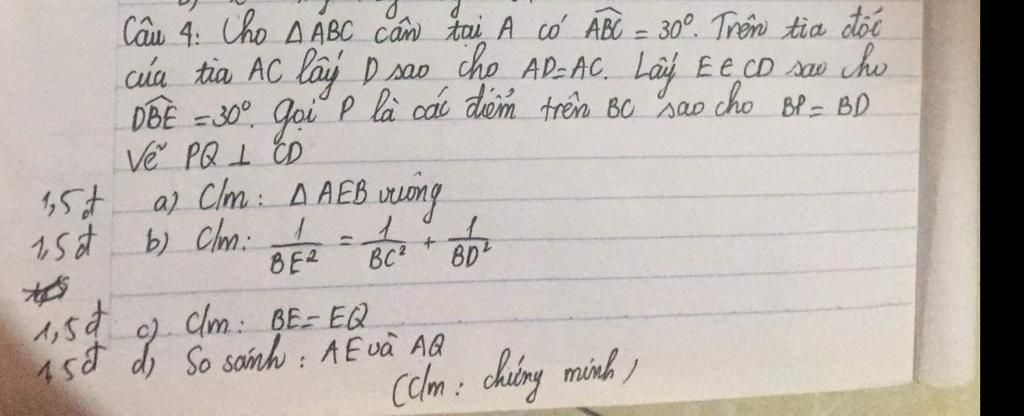 Câu 4: Cho ΔABC cân tại A có ABC = 30°. Trên tia đối
của tia AC lấy D sao cho AD=AC. Lấy E ∈ CD sao cho
DBE = 30°. Gọi P là các điểm trên BC sao cho BP = BD
Vẽ PQ ⊥ CD
1,5đ a) C/m: Δ AEB vuông
1,5đ b) C/m: 1/BE² = 1/BC² + 1/BD²
1,5đ c) C/m: BE = EQ
1,5đ d) So sánh: AE và AQ
(C/m: chứng minh)